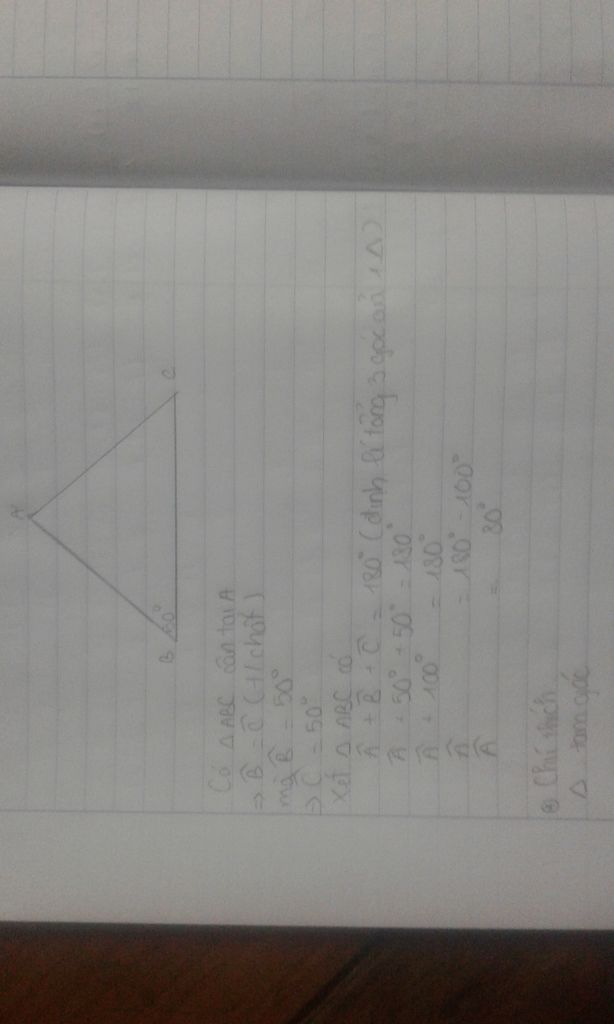 A
B
50°
C
Có Δ ABC cân tại A
=> B̂ = Ĉ (t/chất)
mà B̂ = 50°
=> Ĉ = 50°
Xét Δ ABC có
Â + B̂ + Ĉ = 180° (định lí tổng 3 góc của 1 Δ)
Â + 50° + 50° = 180°
Â + 100° = 180°
Â = 180° - 100°
Â = 80°
Chú thích
Δ : tam giác